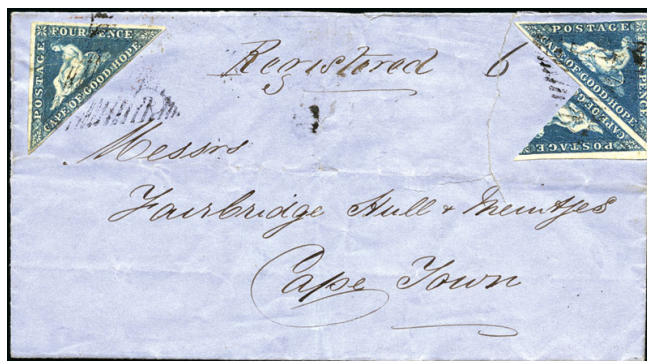 POSTAGE
FOUR PENCE
CAPE OF GOOD HOPE
Registered 6
POSTAGE
CAPE OF GOOD HOPE
CAPE OF G
POSTAGE
Messrs
Fairbridge Hull & Meintjes
Cape Town